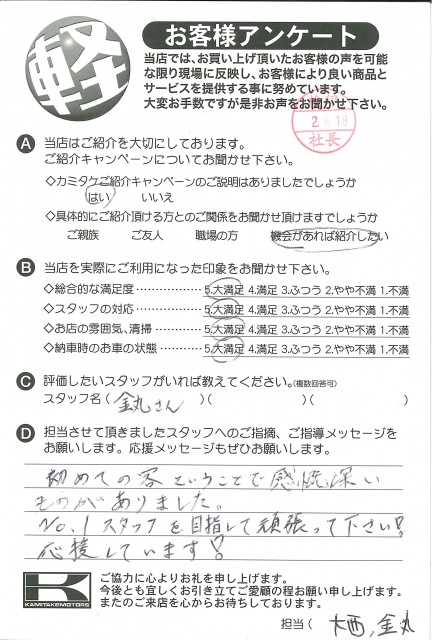 軽
お客様アンケート
当店では、お買い上げ頂いたお客様の声を可能
な限り現場に反映し、お客様により良い商品と
サービスを提供する事に努めています。
大変お手数ですが是非お声をお聞かせ下さい。
2.8.18
社長
A 当店はご紹介を大切にしております。
ご紹介キャンペーンについてお聞かせ下さい。
◇カミタケご紹介キャンペーンのご説明はありましたでしょうか
はい いいえ
◇具体的にご紹介頂ける方とのご関係をお聞かせ頂けますでしょうか
ご親族 ご友人 職場の方 機会があれば紹介したい
B 当店を実際にご利用になった印象をお聞かせ下さい。
◇総合的な満足度 5.大満足 4.満足 3.ふつう 2.やや不満 1.不満
◇スタッフの対応 5.大満足 4.満足 3.ふつう 2.やや不満 1.不満
◇お店の雰囲気、清掃 5.大満足 4.満足 3.ふつう 2.やや不満 1.不満
◇納車時のお車の状態 5.大満足 4.満足 3.ふつう 2.やや不満 1.不満
C 評価したいスタッフがいれば教えてください。(複数回答可)
スタッフ名( 金丸さん )( )( )
D 担当させて頂きましたスタッフへのご指摘、ご指導メッセージを
お願いします。応援メッセージもぜひお願いします。
初めての客ということで感慨深い
ものがありました。
No.1スタッフを目指して頑張って下さい!
応援しています!
K
KAMITAKEMOTORS
ご協力に心よりお礼を申し上げます。
今後とも宜しくお引き立てご愛顧の程お願い申し上げます。
またのご来店を心からお待ちしております。
担当( 大西、金丸